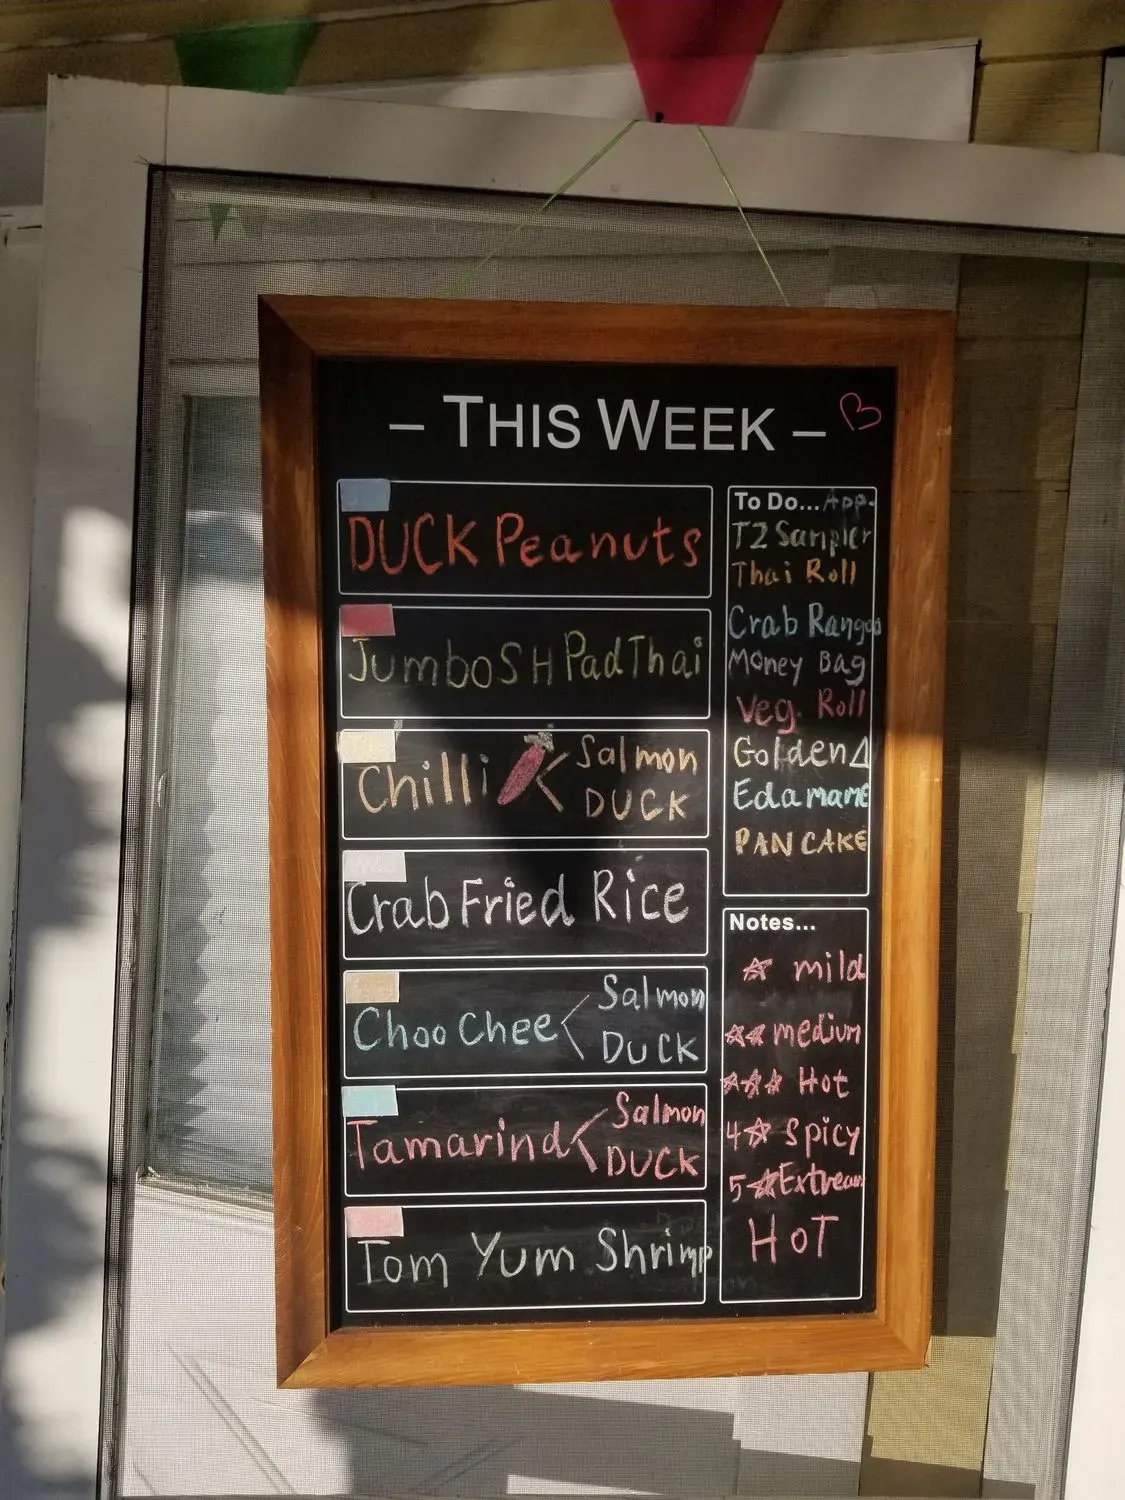 – THIS WEEK –
DUCK Peanuts
Jumbo SH Pad Thai
Chilli < Salmon
DUCK
Crab Fried Rice
Choo Chee < Salmon
DUCK
Tamarind < Salmon
DUCK
Tom Yum Shrimp
To Do... App.
T2 Sampler
Thai Roll
Crab Rangoo
Money Bag
Veg. Roll
Golden Δ
Edamame
PAN CAKE
Notes...
☆ mild
☆☆ medium
☆☆☆ Hot
4☆ Spicy
5☆ Extream
HOT